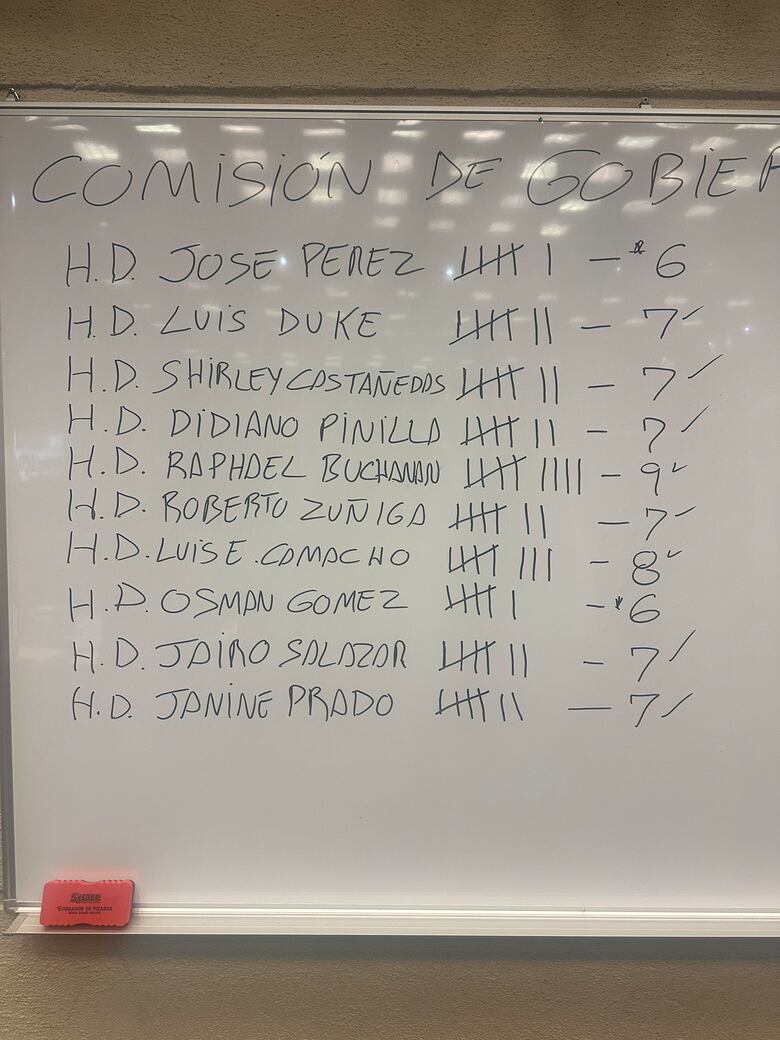 COMISIÓN DE GOBIER
H.D. JOSE PEREZ 𝍸 I — * 6
H.D. LUIS DUKE 𝍸 II — 7 ✓
H.D. SHIRLEY CASTAÑEDAS 𝍸 II — 7 ✓
H.D. DIDIANO PINILLA 𝍸 II — 7 ✓
H.D. RAPHAEL BUCHANAN 𝍸 IIII — 9 ✓
H.D. ROBERTO ZUÑIGA 𝍸 II — 7 ✓
H.D. LUIS E. CAMACHO 𝍸 III — 8 ✓
H.D. OSMAN GOMEZ 𝍸 I — * 6
H.D. JAIRO SALAZAR 𝍸 II — 7 ✓
H.D. JANINE PRADO 𝍸 II — 7 ✓
Sysabe
BORRADOR DE PIZARRA